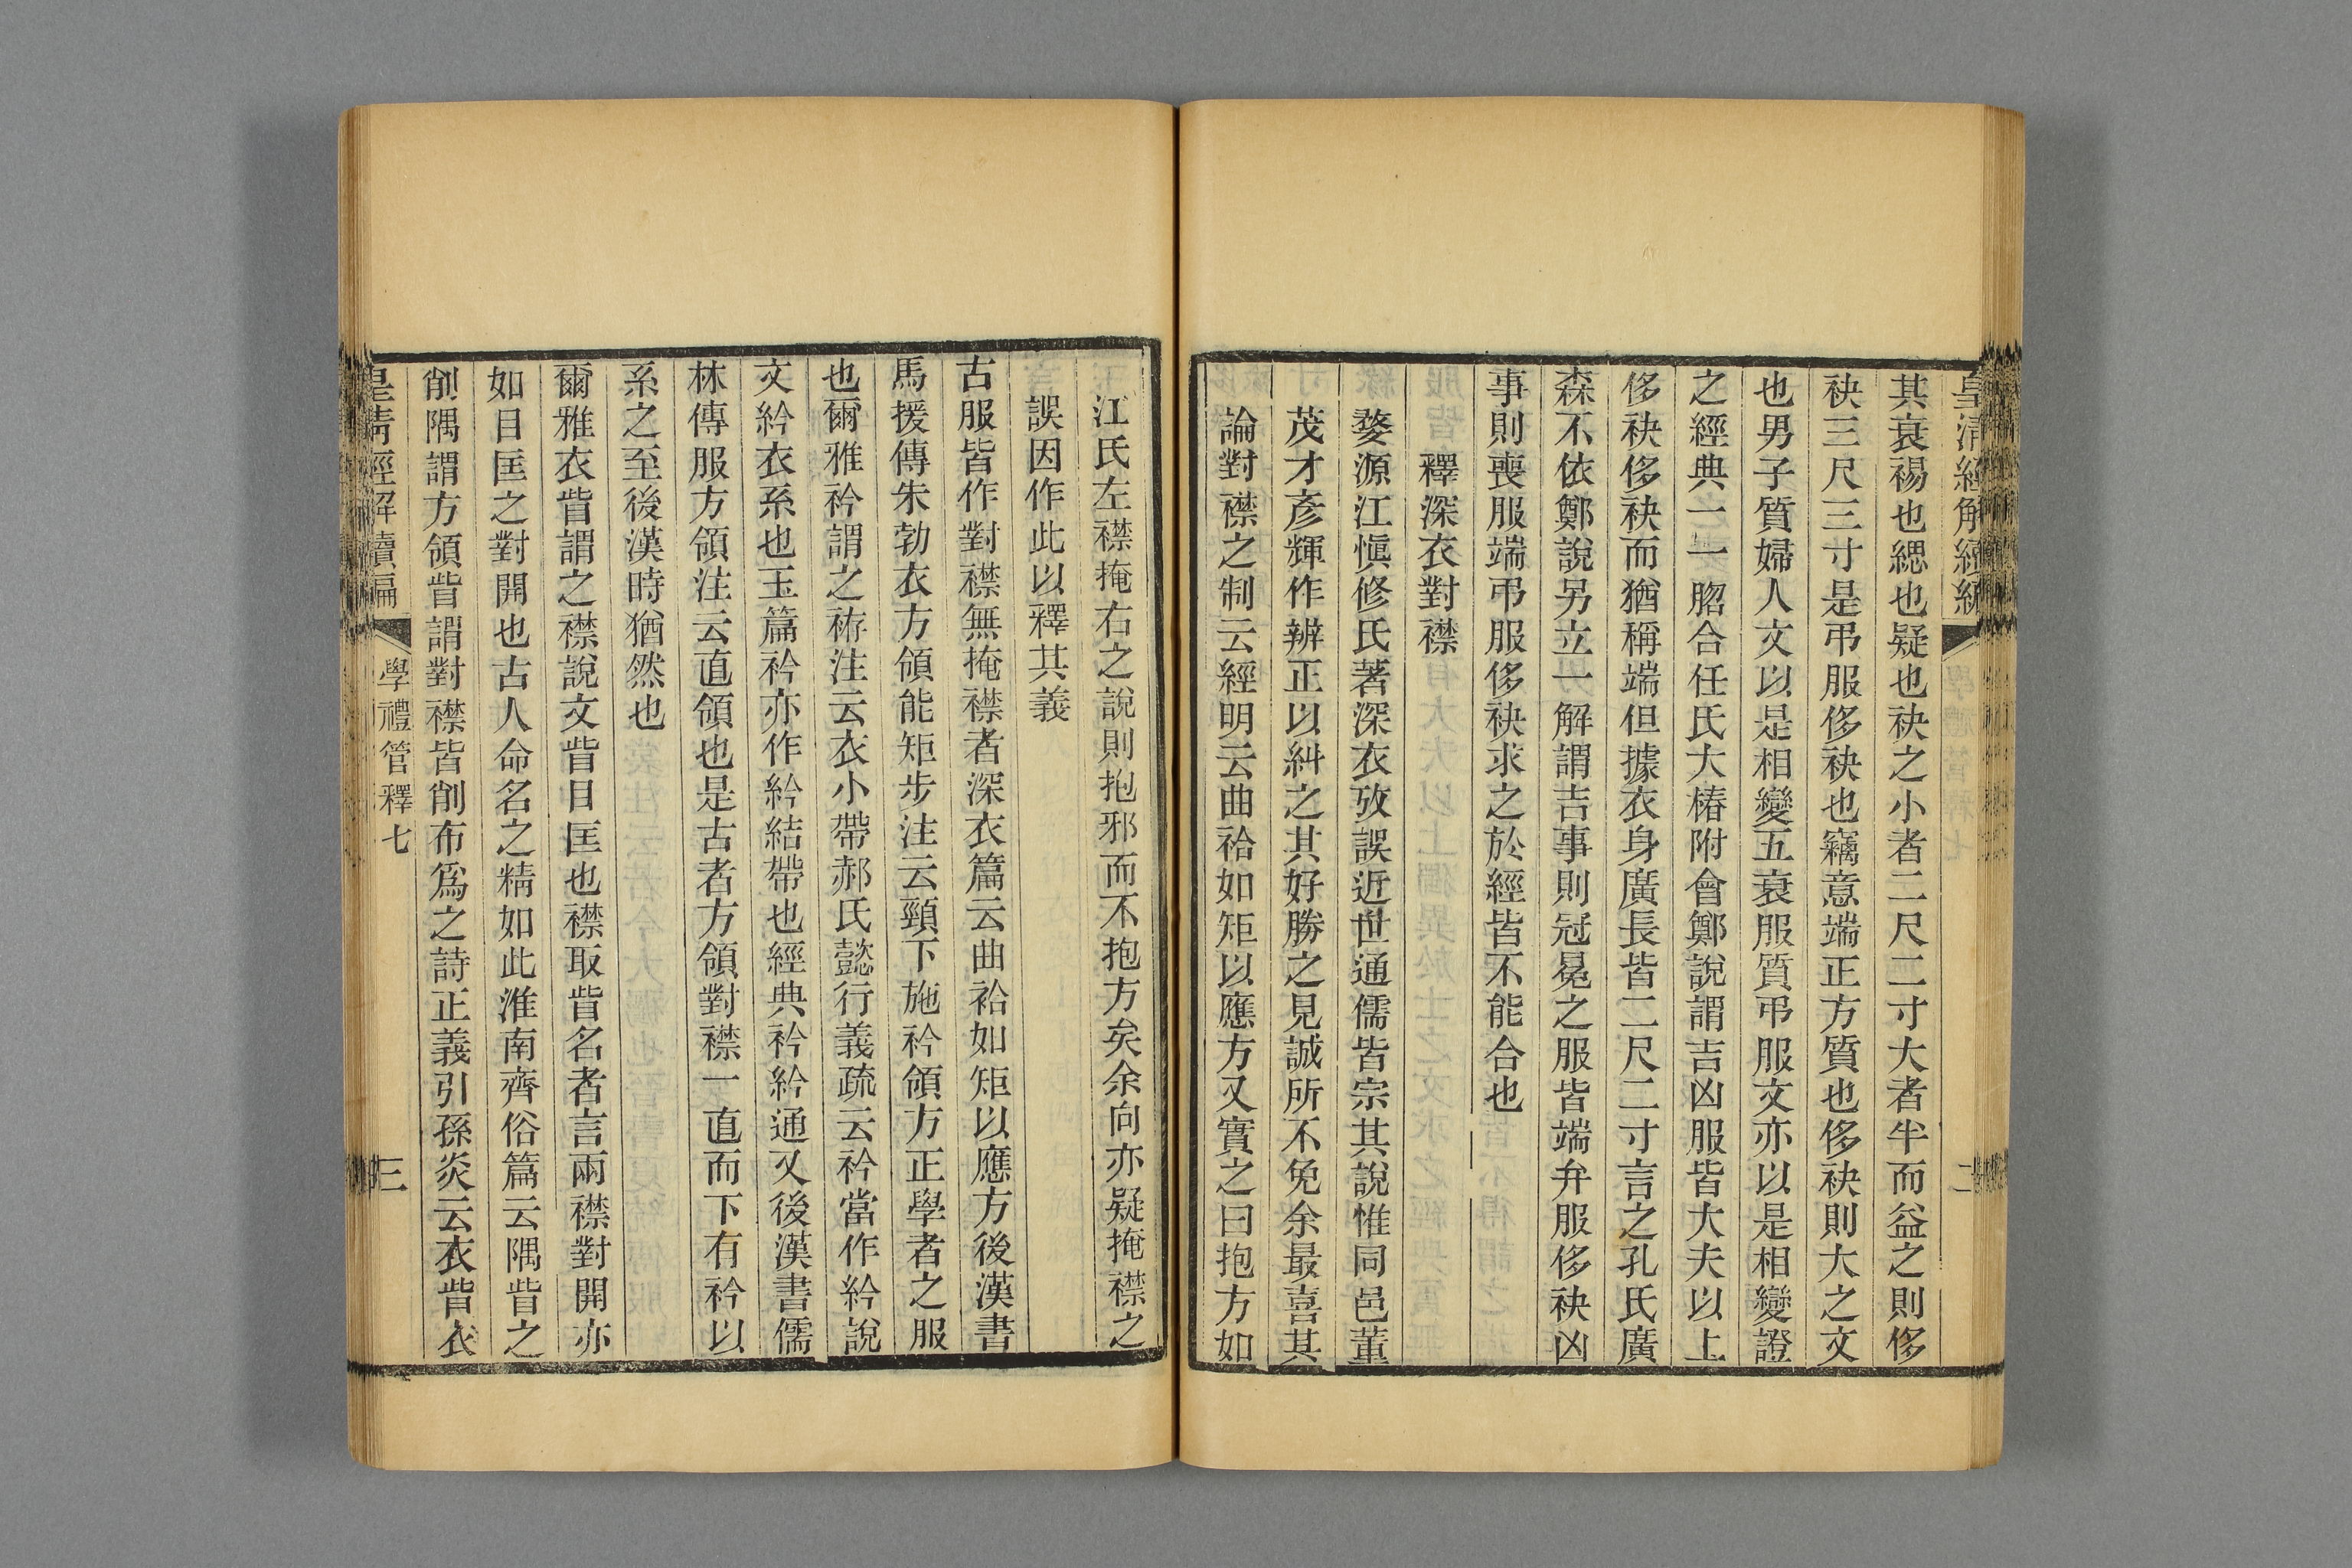 皇清經解續
二
其衰裼也緦也疑也袂之小者二尺二寸大者半而益之則侈
袂三尺三寸是弔服侈袂也竊意端正方質也侈袂則大之文
也男子質婦人文以是相變五衰服質弔服文亦以是相變證
之經典一一脗合任氏大椿附會鄭說謂吉凶服皆大夫以上
侈袂侈袂而猶稱端但據衣身廣長皆二尺二寸言之孔氏廣
森不依鄭說另立一解謂吉事則冠冕之服皆端弁服侈袂凶
事則喪服端弔服侈袂求之於經皆不能合也
釋深衣對襟
婺源江愼修氏著深衣攷誤近世通儒皆宗其說惟同邑董
茂才彥輝作辨正以糾之其好勝之見誠所不免余最喜其
論對襟之制云經明云曲袷如矩以應方又實之曰抱方如
江氏左襟掩右之說則抱邪而不抱方矣余向亦疑掩襟之
誤因作此以釋其義
古服皆作對襟無掩襟者深衣篇云曲袷如矩以應方後漢書
馬援傳朱勃衣方領能矩步注云頸下施衿領方正學者之服
也爾雅衿謂之袸注云衣小帶郝氏懿行義疏云衿當作紟說
文紟衣系也玉篇衿亦作紟結帶也經典衿紟通又後漢書儒
林傳服方領注云直領也是古者方領對襟一直而下有衿以
系之至後漢時猶然也
爾雅衣眥謂之襟說文眥目匡也襟取眥名者言兩襟對開亦
如目匡之對開也古人命名之精如此淮南齊俗篇云隅眥之
削隅謂方領眥謂對襟皆削布爲之詩正義引孫炎云衣眥衣
皇淸經解續編
學禮管釋七
三